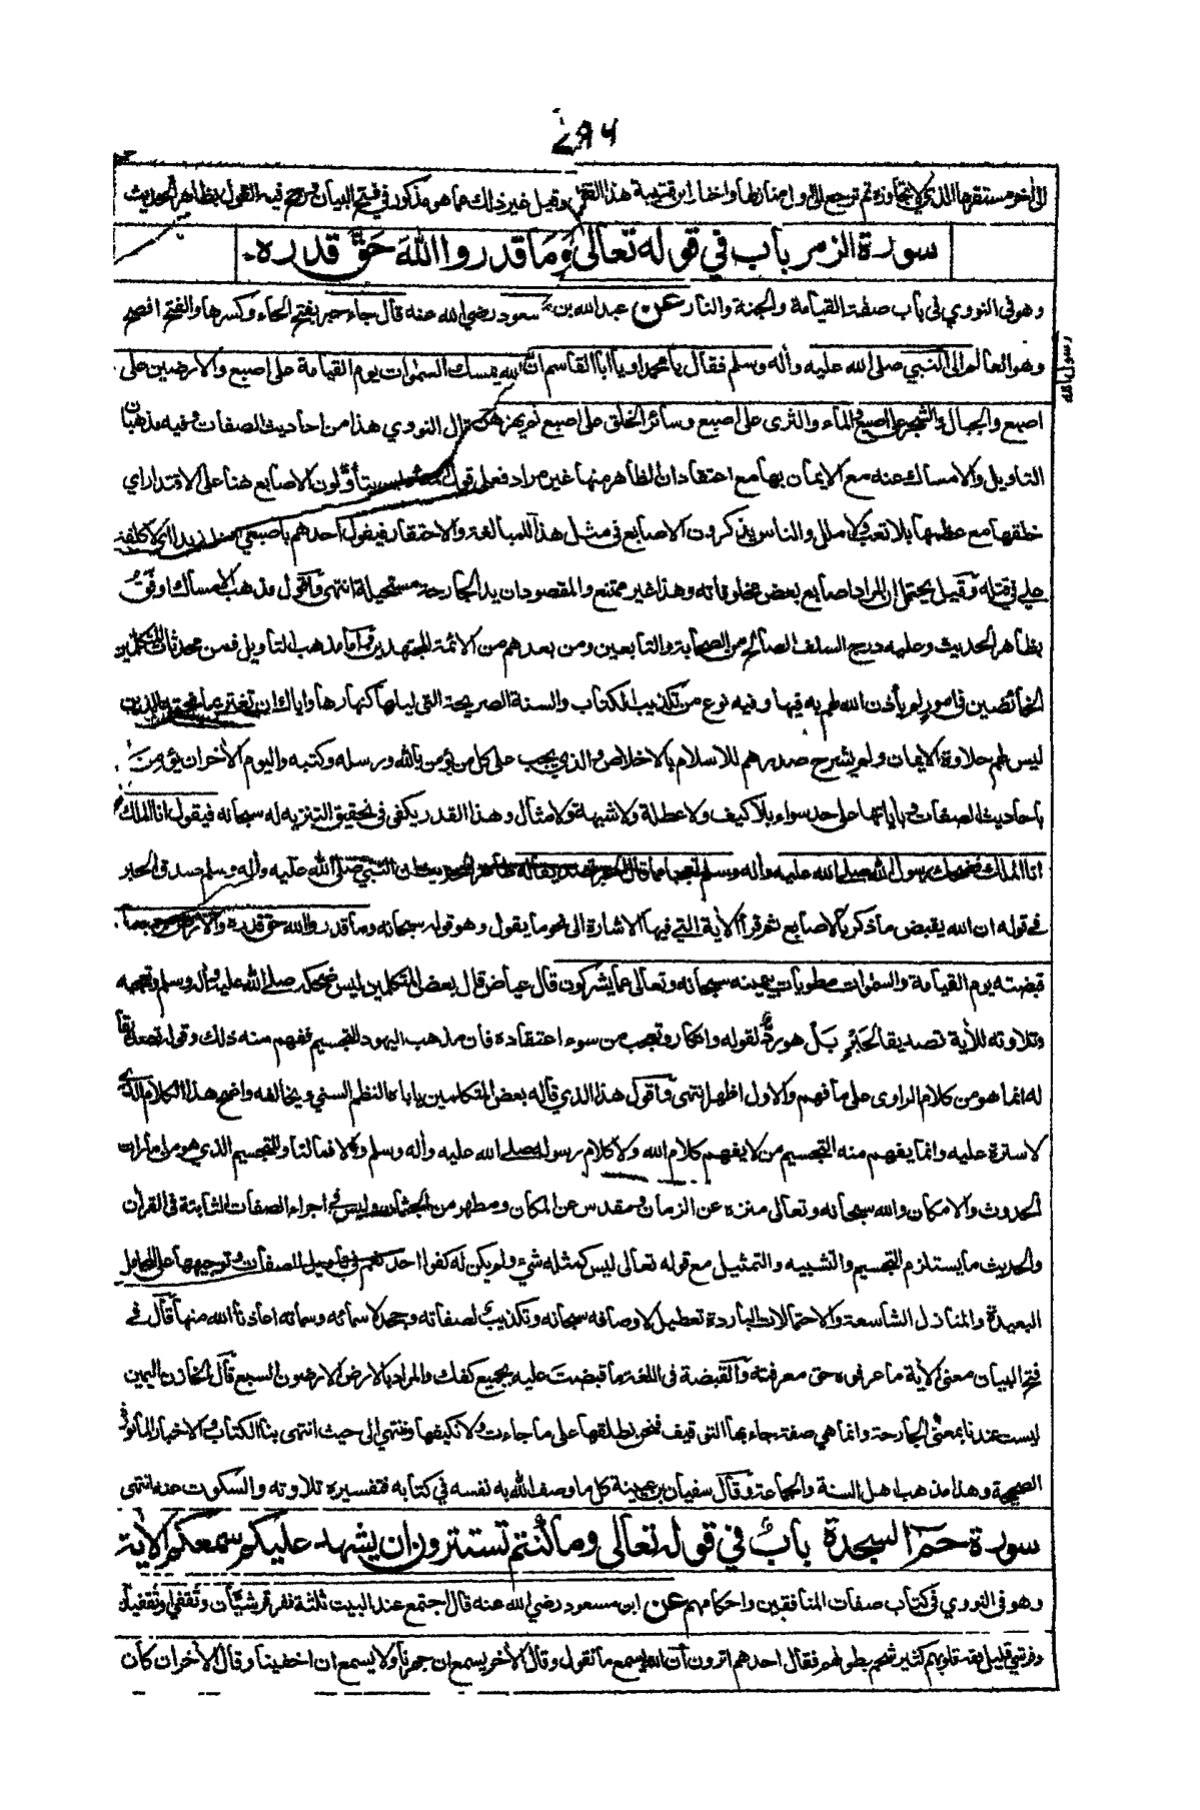 ٤٩٤
الى اخر مستقرها الذي لا تتجاوزه ثم ترجع الى اول منازلها واختار ابن قتيبة هذا القول وقيل غير ذلك مما هو مذكور في فتح البيان ورجح فيه القول بظاهر الحديث
سورة الزمر باب في قوله تعالى وَمَا قدروا اللهَ حَقَّ قدره
وهو في النووي في باب صفة القيامة والجنة والنار عن عبد الله بن مسعود رضي الله عنه قال جاء حبر بفتح الحاء وكسرها والفتح افصح
وهو العالم الى النبي صلى الله عليه وأله وسلم فقال يا محمد او يا أبا القاسم ان الله يمسك السموات يوم القيامة على اصبع والارضين على
رسول الله
اصبع والجبال والشجر على اصبع والماء والثرى على اصبع وسائر الخلق على اصبع ثم يهزهن قال النووي هذا من احاديث الصفات وفيه مذهبان
التاويل والامساك عنه مع الايمان بها مع اعتقاد ان الظاهر منها غير مراد فعلى قول يتأولون الاصابع هنا على الاقتدار اي
خلقها مع عظمها بلا تعب ولا ملل والناس يذكرون الاصابع في مثل هذا للمبالغة والاحتقار فيقول احدهم باصبعي زيدا اي لا كلفة
علي في قتله وقيل يحتمل ان المراد اصابع بعض مخلوقاته وهذا غير ممتنع والمقصود ان يد الجارحة مستحيلة انتهى واقول مذهب الامساك اوفق
بظاهر الحديث وعليه درج السلف الصالح من الصحابة والتابعين ومن بعدهم من الائمة المجتهدين واما مذهب التاويل فمن محدثات المتكلمين
الخائضين في امور لم يأذن الله لهم به فيها وفيه نوع من تكذيب للكتاب والسنة الصريحة التي ليلها كنهارها واياك ان تغتر بما الذين
ليس لهم حلاوة الايمان ولم يشرح صدرهم للاسلام بالاخلاص والذي يجب على كل من يؤمن بالله ورسله وكتبه واليوم الأخر ان يؤمن
بأحاديث الصفات وباياتها على حد سواء بلا كيف ولا عطلة ولا شبهة ولا مثال وهذا القدر يكفي في تحقيق التنزيه له سبحانه فيقول انا الملك
انا الملك فضحك رسول الله صلى الله عليه وأله وسلم تعجبا مما قال الحبر تصديقا له ظاهر الحديث ان النبي صلى الله عليه وأله وسلم صدق الحبر
في قوله ان الله يقبض ما ذكر بالاصابع ثم قرأ الأية التي فيها الاشارة الى نحو ما يقول وهو قوله سبحانه وما قدروا الله حق قدره والارض جميعا
قبضته يوم القيامة والسموات مطويات بيمينه سبحانه وتعالى عما يشركون قال عياض قال بعض المتكلمين ليس ضحكه صلى الله عليه وأله وسلم وتعجبه
وتلاوته للأية تصديقا للحبر بل هو رد لقوله وانكار وتعجب من سوء اعتقاده فان مذهب اليهود التجسيم ففهم منه ذلك وقوله تصديقا
له انما هو من كلام الراوي على ما فهم والاول اظهر انتهى واقول هذا الذي قاله بعض المتكلمين يأباه النظم السني ويخالفه واضح هذا الكلام الذي
لا سترة عليه وانما يفهم منه التجسيم من لا يفهم كلام الله ولا كلام رسوله صلى الله عليه وأله وسلم والا فما لنا وللتجسيم الذي هو من امارات
الحدوث والامكان والله سبحانه وتعالى منزه عن الزمان ومقدس عن المكان ومطهر من الجثمان وليس في اجراء الصفات الثابتة في القرأن
والحديث ما يستلزم التجسيم والتشبيه والتمثيل مع قوله تعالى ليس كمثله شيء ولم يكن له كفوا احد نعم في تاويل الصفات وتوجيهها على المحامل
البعيدة والمنازل الشاسعة والاحتمالات الباردة تعطيل لاوصافه سبحانه وتكذيب لصفاته وجحد لاسمائه وسماته اعاذنا الله منها قال في
فتح البيان معنى الأية ما عرفوه حق معرفته والقبضة في اللغة ما قبضت عليه بجميع كفك والمراد بالارض الارضون السبع قال الخازن اليمين
ليست عندنا بمعنى الجارحة وانما هي صفة جاء بها التوقيف فنحن نطلقها على ما جاءت ولا نكيفها وننتهي الى حيث انتهى بنا الكتاب والاخبار المأثورة
الصحيحة وهذا مذهب اهل السنة والجماعة وقال سفيان بن عيينة كل ما وصف الله به نفسه في كتابه فتفسيره تلاوته والسكوت عنه انتهى
سورة حم السجدة باب في قوله تعالى وما كنتم تستترون ان يشهد عليكم سمعكم الأية
وهو في النووي في كتاب صفات المنافقين واحكامهم عن ابن مسعود رضي الله عنه قال اجتمع عند البيت ثلثة نفر قرشيان وثقفي او ثقفيان
وقرشي قليل فقه قلوبهم كثير شحم بطونهم فقال احدهم اترون ان الله يسمع ما نقول وقال الأخر يسمع ان جهرنا ولا يسمع ان اخفينا وقال الأخر ان كان